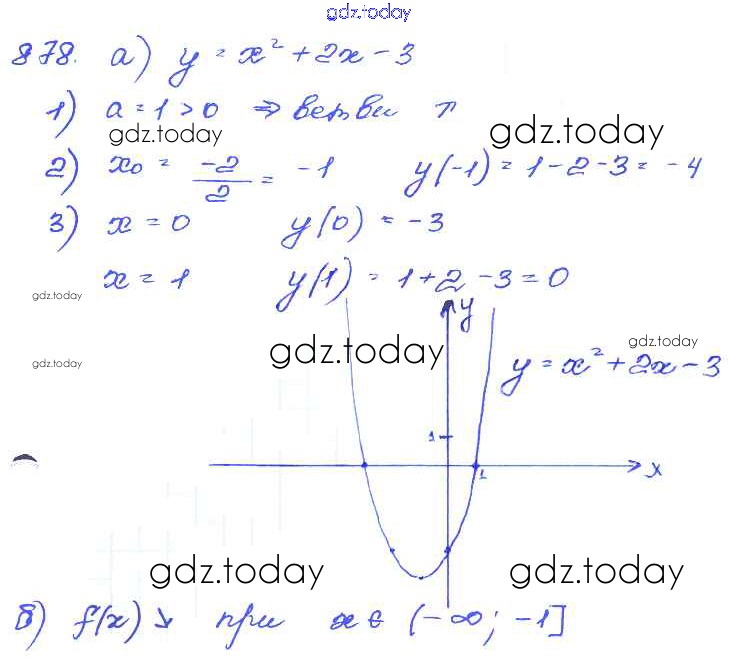 gdz.today
878. а) y = x² + 2x - 3
1) a = 1 > 0 ⇒ ветви ↑
gdz.today gdz.today
2) x₀ = -2/2 = -1 y(-1) = 1 - 2 - 3 = -4
3) x = 0 y(0) = -3
x = 1 y(1) = 1 + 2 - 3 = 0
gdz.today
y
gdz.today gdz.today gdz.today
y = x² + 2x - 3
1
1 x
gdz.today gdz.today
б) f(x) ↘ при x ∈ (-∞; -1]